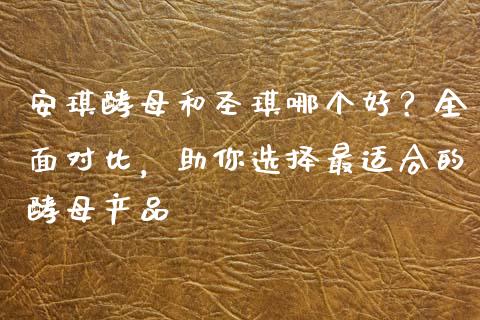 安琪酵母和圣琪哪个好？全
面对比，助你选择最适合的
酵母产品